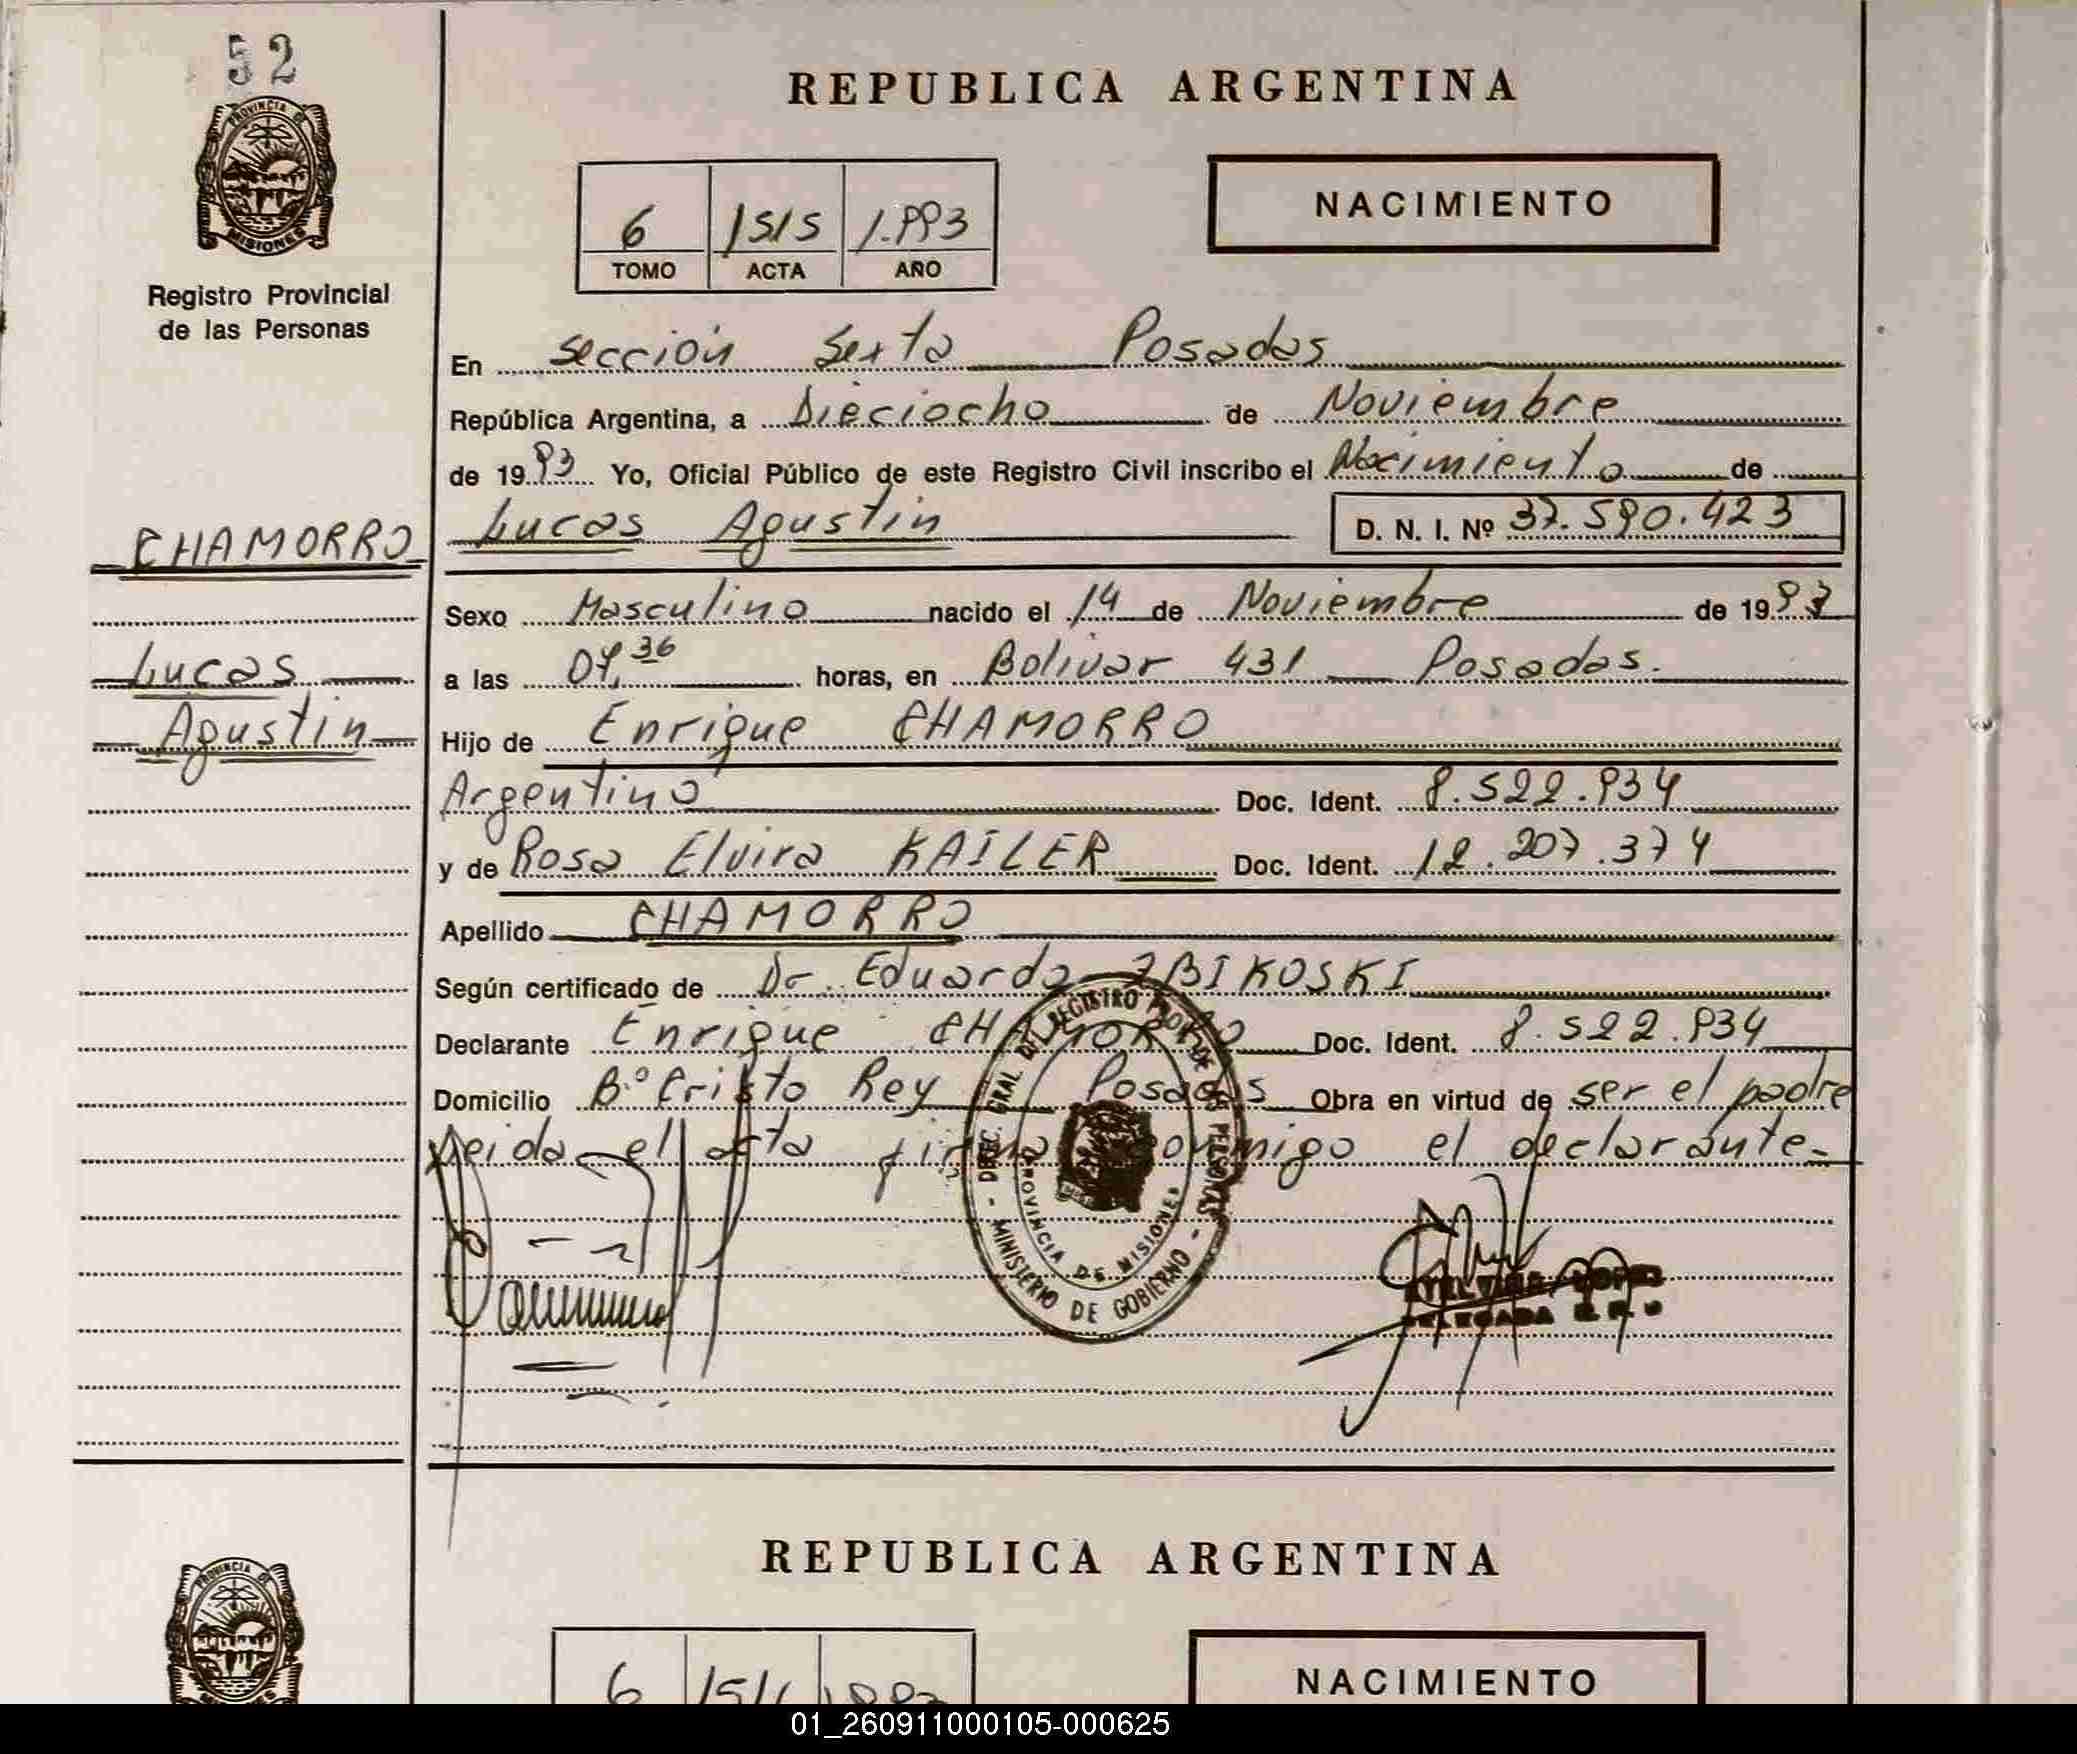 52
PROVINCIA DE
MISIONES
Registro Provincial
de las Personas
REPUBLICA ARGENTINA
6 1515 1.993
TOMO ACTA AÑO
NACIMIENTO
En Sección Sexta Posadas
República Argentina, a Dieciocho de Noviembre
de 1993 Yo, Oficial Público de este Registro Civil inscribo el Nacimiento de
CHAMORRO
Lucas Agustin
D. N. I. Nº 37.590.423
Sexo Masculino nacido el 14 de Noviembre de 1993
Lucas
a las 04,36 horas, en Bolivar 431 Posadas.
Agustin
Hijo de Enrique CHAMORRO
Argentino Doc. Ident. 8.522.934
y de Rosa Elvira KAILER Doc. Ident. 12.207.374
Apellido CHAMORRO
Según certificado de Dr. Eduardo ZBIKOSKI
Declarante Enrique CHAMORRO Doc. Ident. 8.522.934
Domicilio Bº Cristo Rey Posadas Obra en virtud de ser el padre
Leida el acta firma conmigo el declarante.-
DIREC. GRAL. DEL REGISTRO PROV. DE LAS PERSONAS
PROVINCIA DE MISIONES
- MINISTERIO DE GOBIERNO -
LOPEZ
DELEGADA
PROVINCIA DE
REPUBLICA ARGENTINA
6
NACIMIENTO
01_260911000105-000625